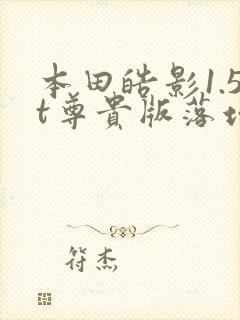 本田皓影1.5
t尊貴版落
符杰